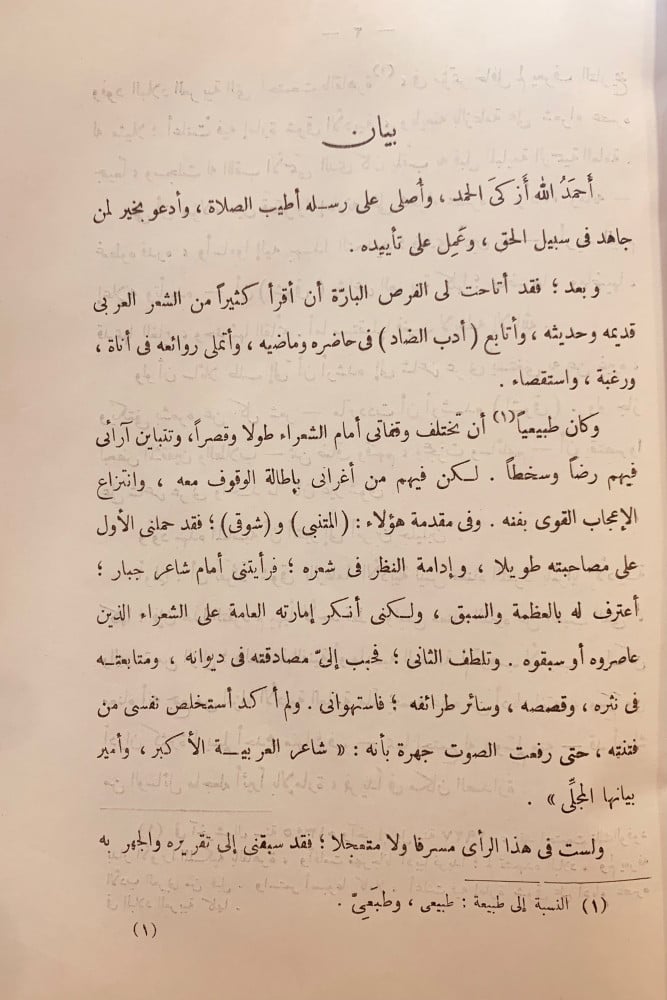 بيان
أَحمَدُ اللّه أزكَى الحمد ، وأُصلى على رسله أطيب الصلاة ، وأدعو بخير لمن
جاهد فى سبيل الحق ، وعَمِل على تأييده .
وبعد ؛ فقد أتاحت لى الفرص البارّة أن أقرأ كثيراً من الشعر العربى
قديمه وحديثه ، وأتابع ( أدب الضاد ) فى حاضره وماضيه ، وأتملى روائعه فى أناة ،
ورغبة ، واستقصاء .
وكان طبيعياً (١) أن تختلف وقفاتى أمام الشعراء طولا وقصراً، وتتباين آرائى
فيهم رضاً وسخطاً . لكن فيهم من أغرانى بإطالة الوقوف معه ، وانتزاع
الإعجاب القوى بفنه . وفى مقدمة هؤلاء : (المتنبى) و (شوقى) ؛ فقد حملنى الأول
على مصاحبته طويلا ، وإدامة النظر فى شعره ؛ فرأيتنى أمام شاعر جبار ؛
أعترف له بالعظمة والسبق ، ولكنى أنكر إمارته العامة على الشعراء الذين
عاصروه أو سبقوه . وتلطف الثانى ؛ فحبب إلىّ مصادقته فى ديوانه ، ومتابعته
فى نثره ، وقصصه ، وسائر طرائفه ؛ فاستهوانى . ولم أكد أستخلص نفسى من
فتنته ، حتى رفعت الصوت جهرة بأنه : « شاعر العربية الأكبر ، وأمير
بيانها المجلِّى » .
ولست فى هذا الرأى مسرفا ولا متعجلا ؛ فقد سبقنى إلى تقريره والجهر به
(١) النسبة إلى طبيعة : طبيعى ، وطبَعىّ .
(١)